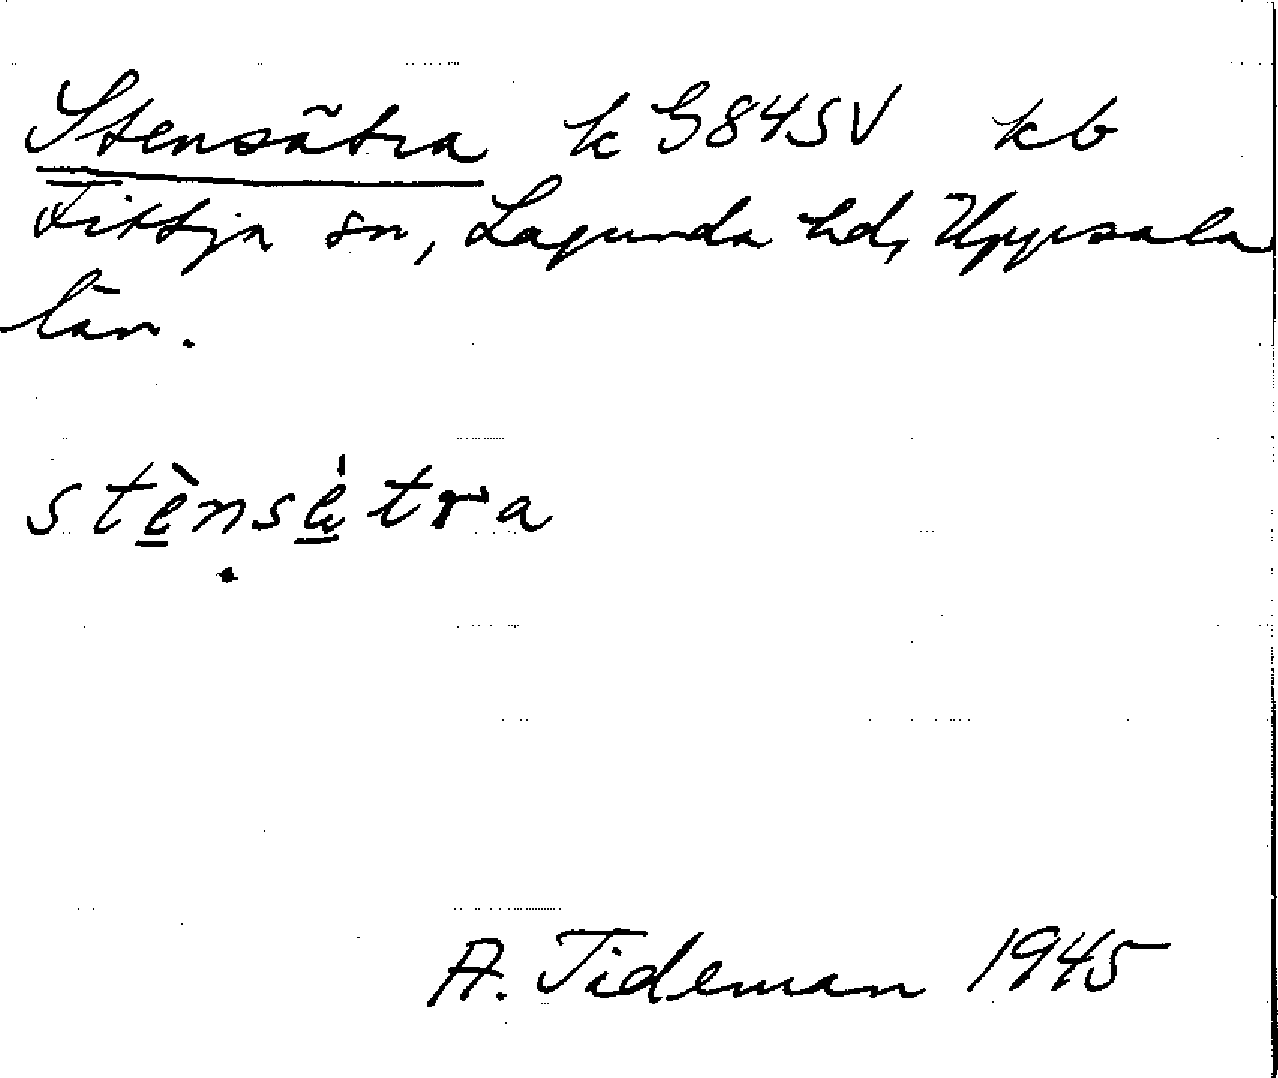 Stensätra k G84SV kb
Fittja sn, Lagunda hd, Uppsala
län.
stènsètra
A. Tideman 1945